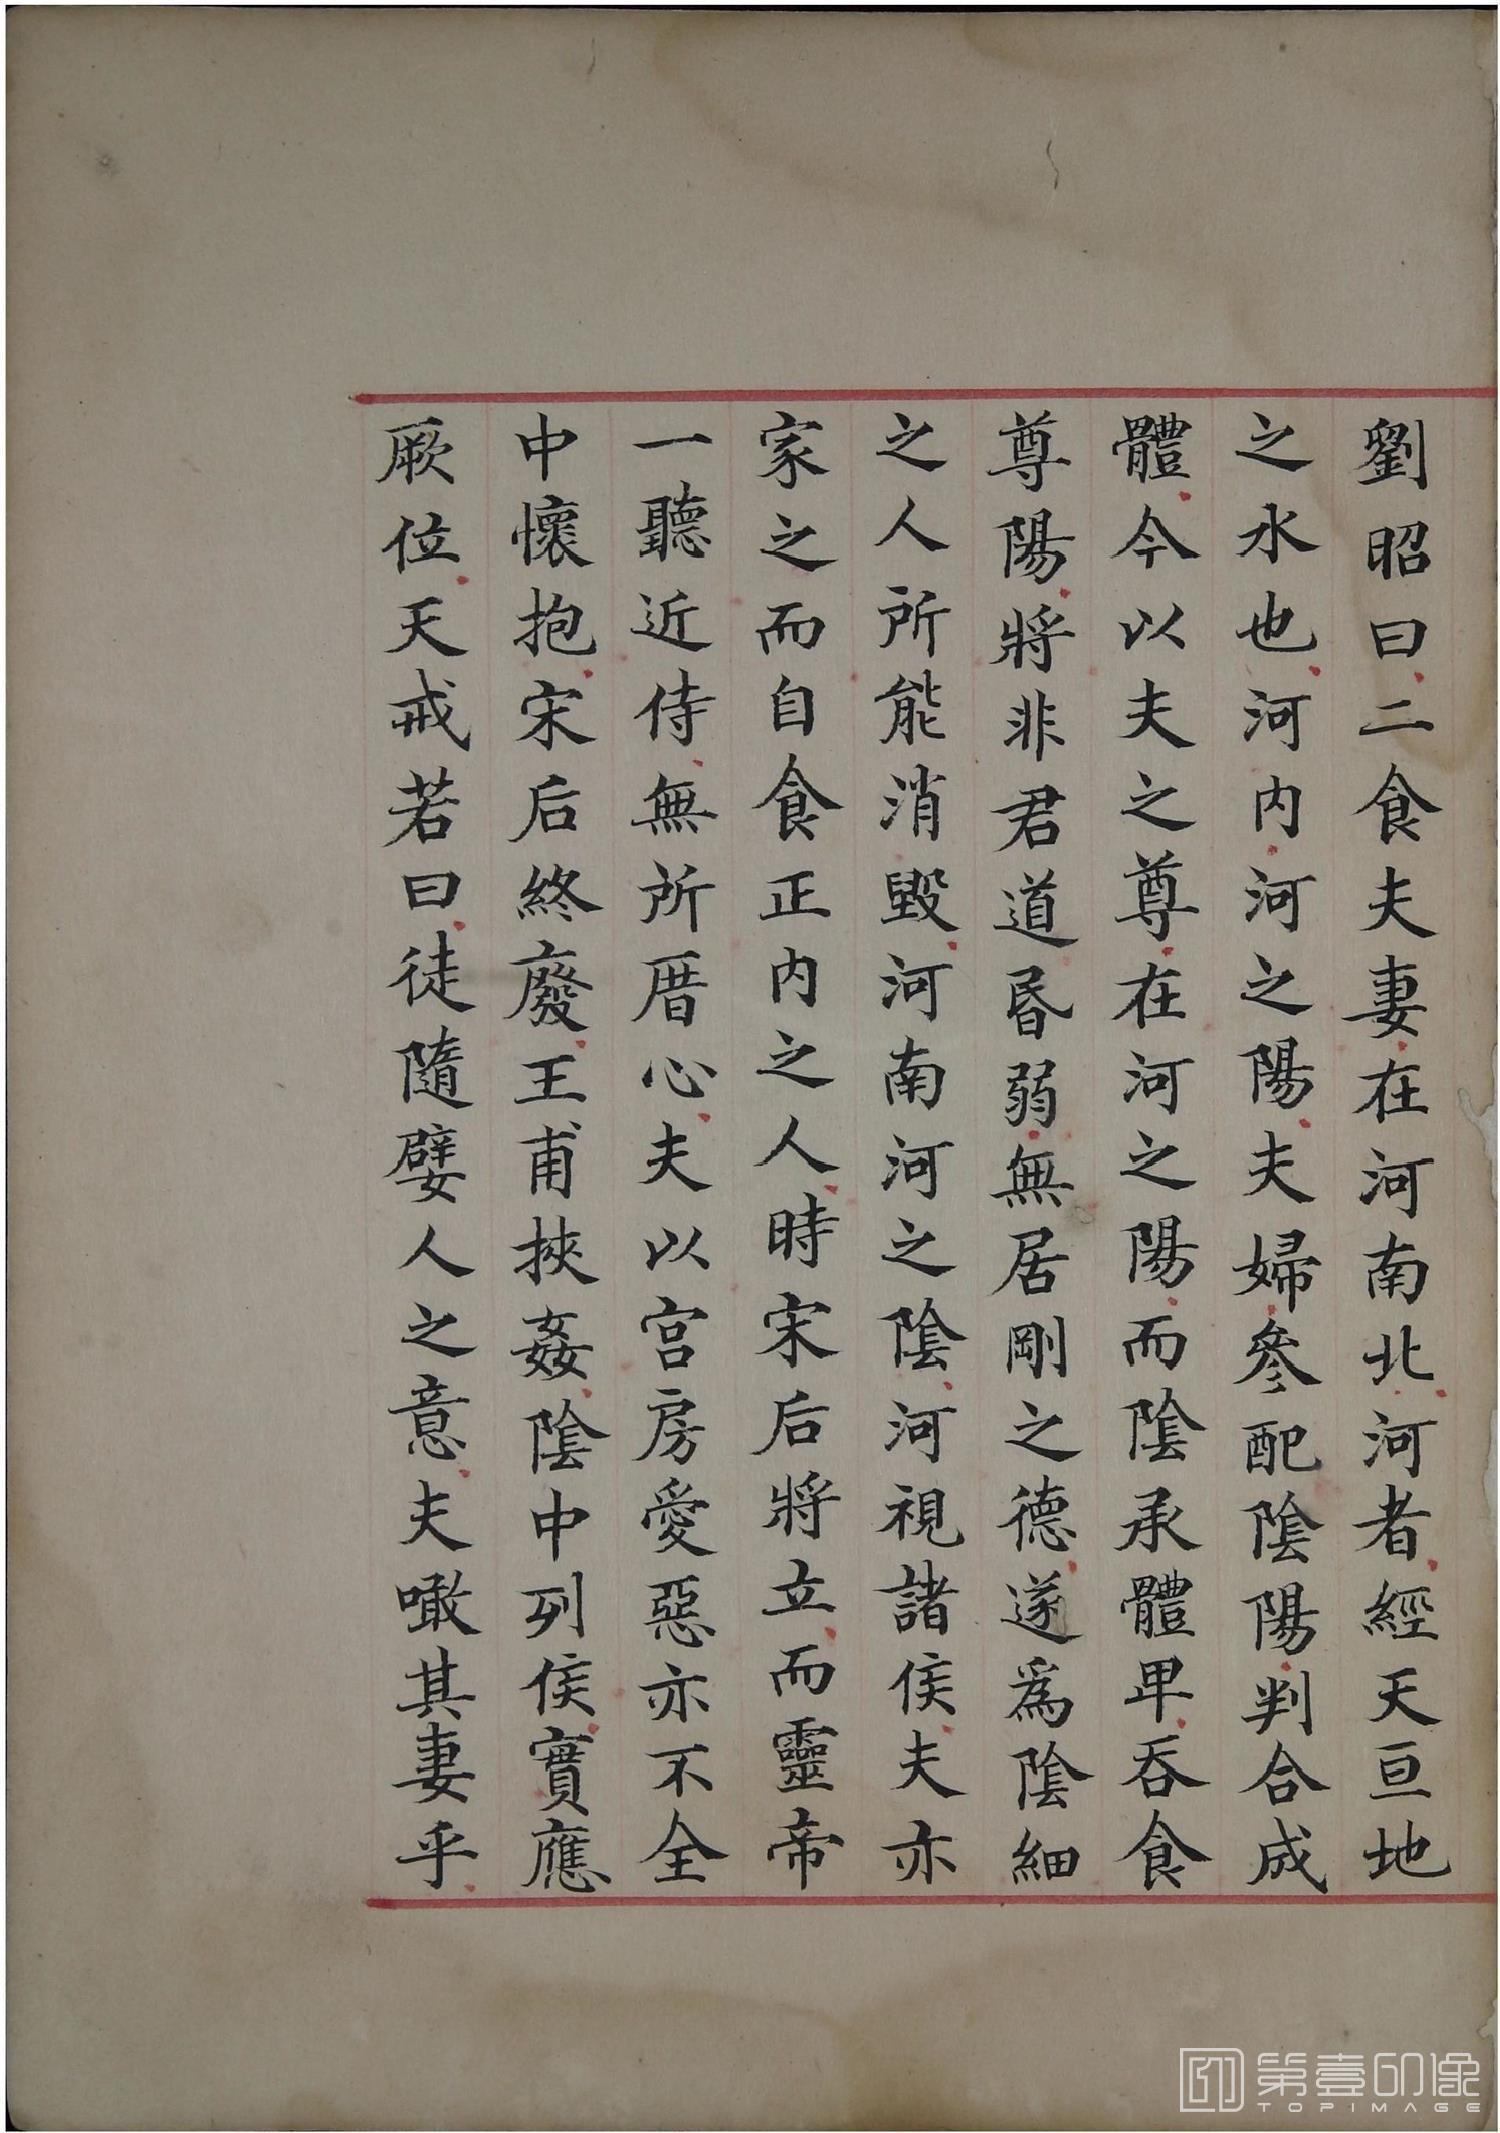 劉昭曰二食夫妻在河南北河者經天亘地
之水也河内河之陽夫婦參配陰陽判合成
體今以夫之尊在河之陽而陰承體卑吞食
尊陽將非君道昬弱無居剛之德遂爲陰細
之人所能消毀河南河之陰河視諸侯夫亦
家之而自食正内之人時宋后將立而靈帝
一聽近侍無所厝心夫以宫房愛惡亦不全
中懷抱宋后終廢王甫挾姦陰中列侯實應
厥位天戒若曰徒隨嬖人之意夫噉其妻乎
第壹印像
TOPIMAGE